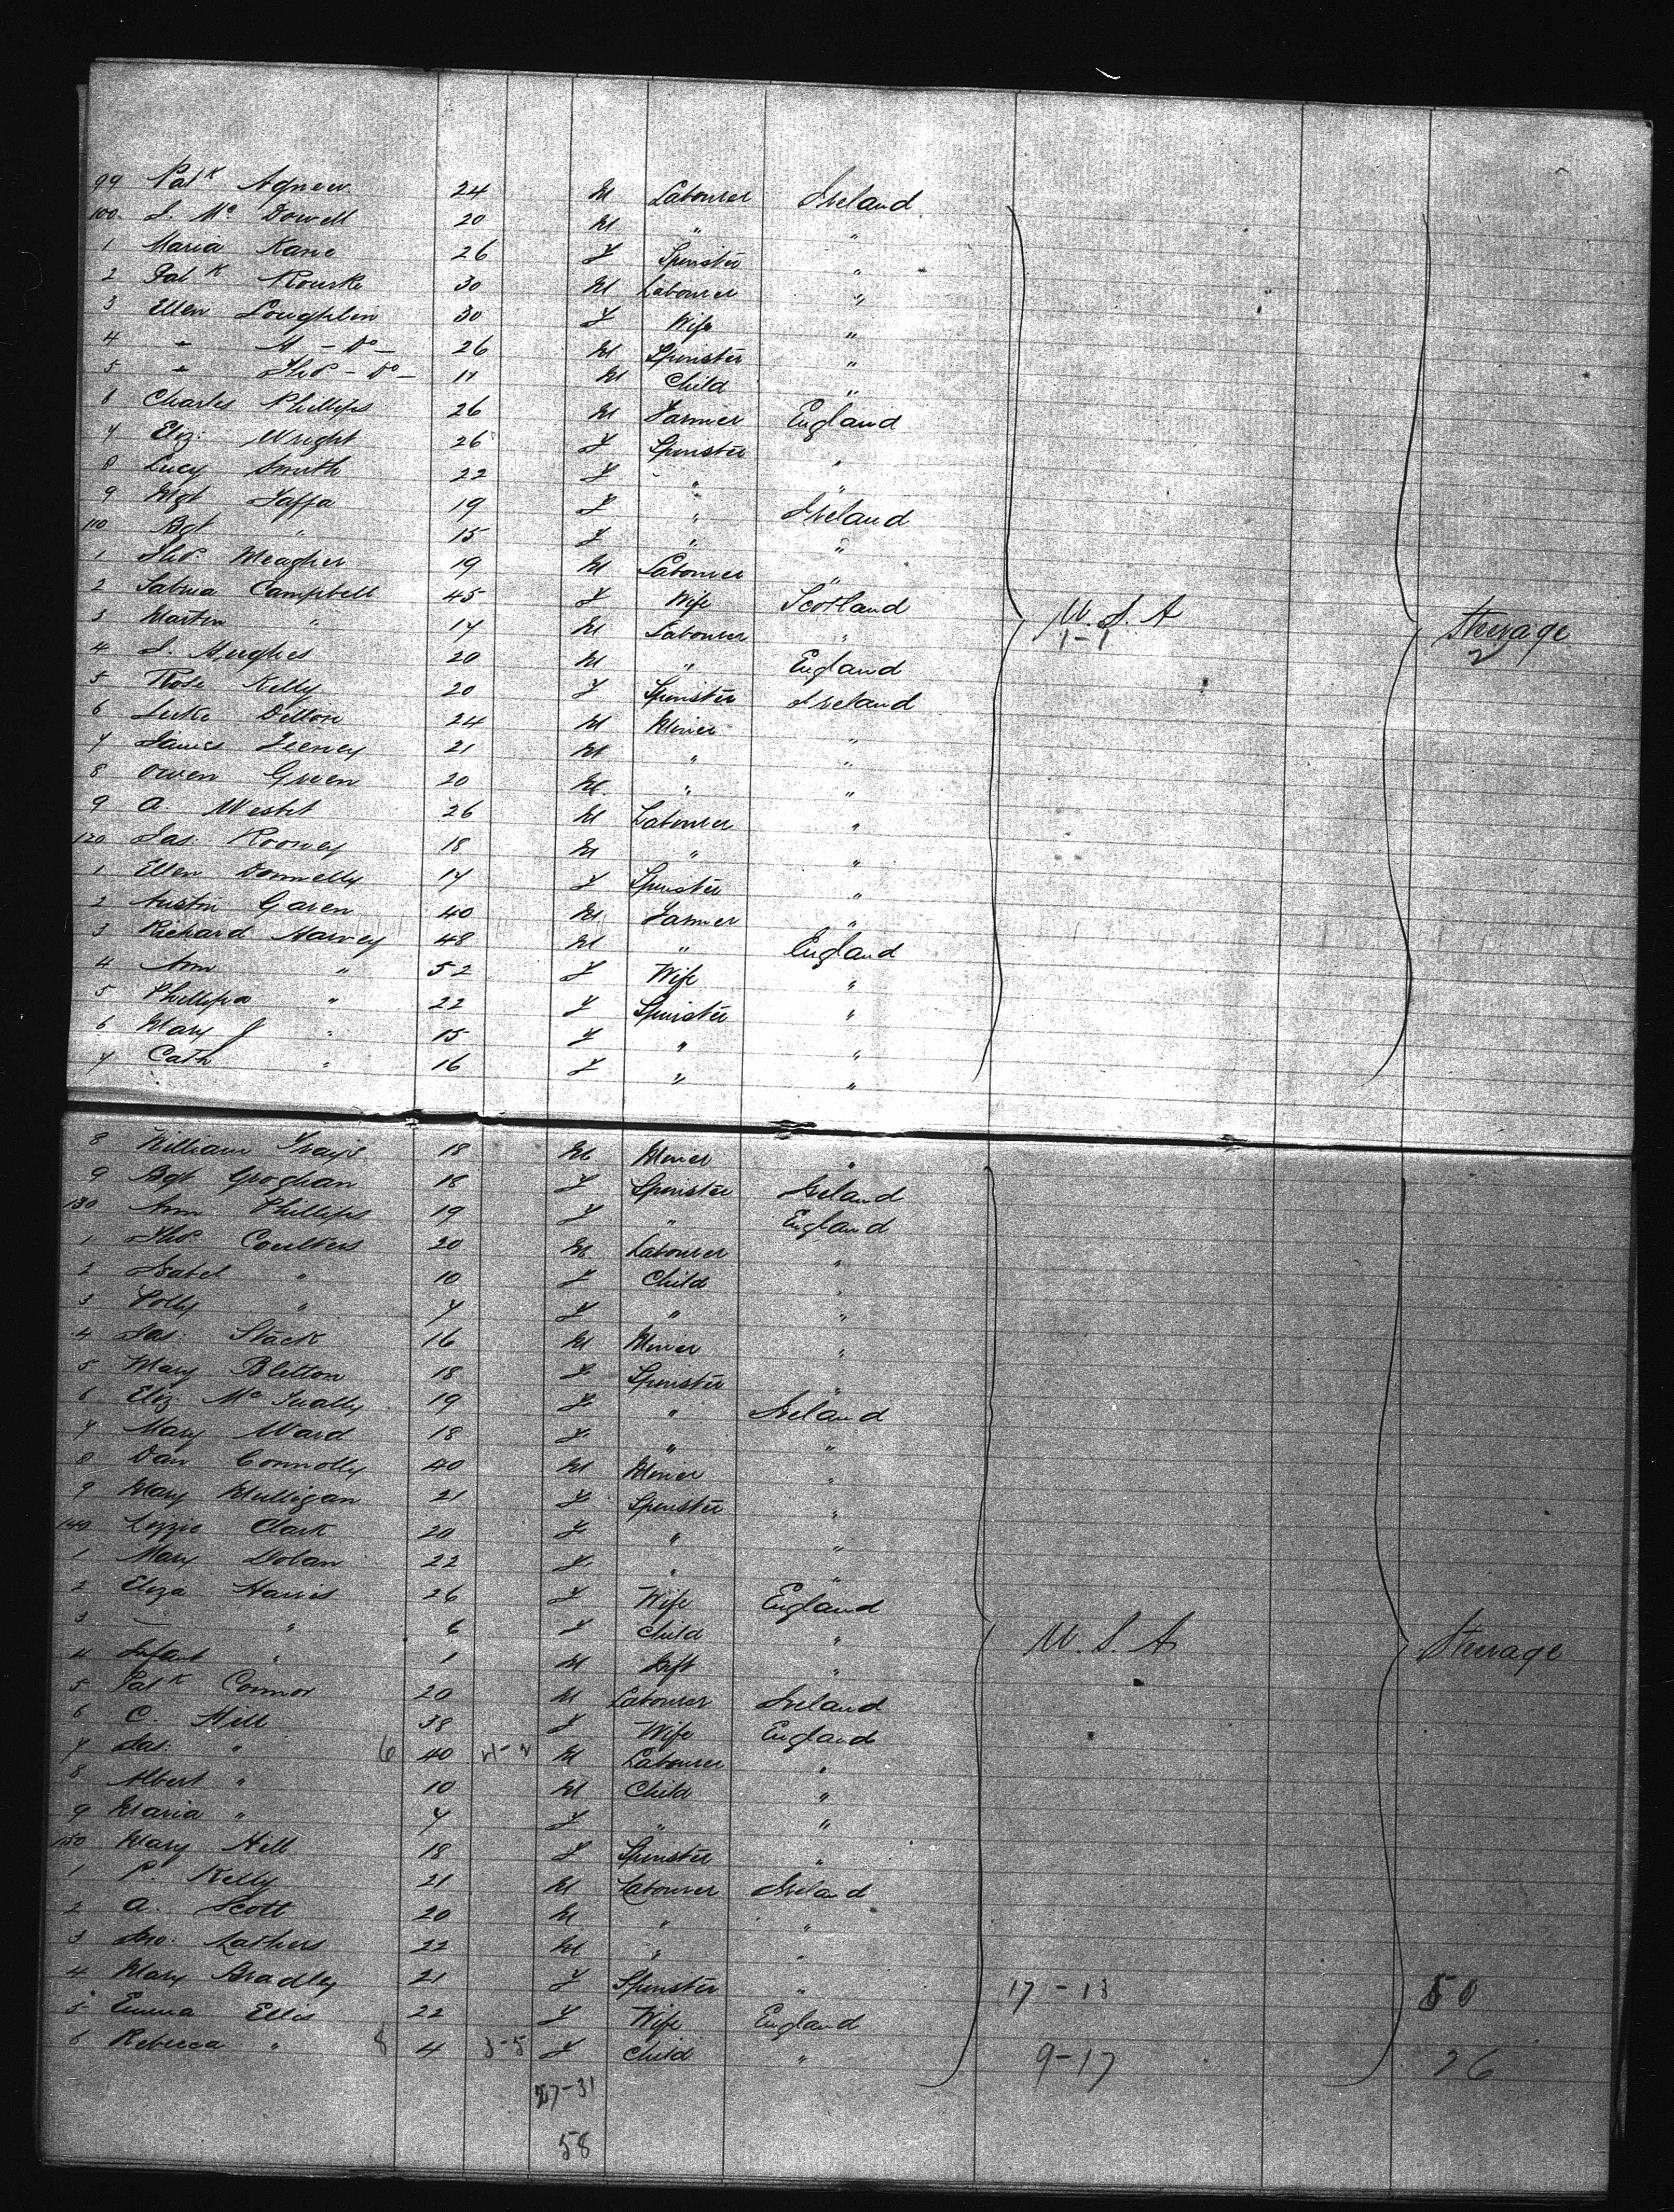 99 Patk Agnew 24 M Labourer Ireland
100 J. Mc Dowell 20 M " "
1 Maria Kane 26 F Spinster "
2 Patk Rourke 30 M Labourer "
3 Ellen Loughlin 30 F Wife "
4 " M - Do - 26 M Spinster "
5 " Thos - Do - 11 M Child "
6 Charles Phillips 26 M Farmer England
7 Eliz: Wright 26 F Spinster "
8 Lucy Smith 22 F " "
9 Mgt Taffa 19 F " Ireland
110 Bgt " 15 F " "
1 Thos. Meagher 19 M Labourer "
2 Campbell 45 F Wife Scotland
3 Martin " 17 M Labourer " U. S. A Steerage
1-1 2
4 J. Hughes 20 M " England
5 Rose Kelly 20 F Spinster Ireland
6 Luke Dillon 24 M Miner "
7 James Feeney 21 M " "
8 Owen Green 20 M " "
9 A. 26 M Labourer "
120 Jas: Rooney 18 M " "
1 Ellen Donnelly 17 F Spinster "
2 Austin Garen 40 M Farmer "
3 Richard Harvey 48 M " England
4 Ann " 52 F Wife "
5 Phillipa " 22 F Spinster "
6 Mary J " 15 F " "
7 Cath " 16 F " "
8 William 18 M Miner "
9 Bgt Groghan 18 F Spinster Ireland
130 Ann Phillips 19 F " England
1 Thos. Coulters 20 M Labourer "
2 Isabel " 10 F Child "
3 Polly " 7 F " "
4 Jas: Stack 16 M Miner "
5 Mary Bletton 18 F Spinster "
6 Eliz Mc 19 F " Ireland
7 Mary Ward 18 F " "
8 Dan Connolly 40 M Miner "
9 Mary Mulligan 21 F Spinster "
140 Lizzie Clark 20 F " "
1 Mary Dolan 22 F " "
2 Eliza Harris 26 F Wife England
3 — " 6 F Child " U. S. A Steerage
4 Infant " 1 M "
5 Patk Connor 20 M Labourer Ireland
6 C. Hill 38 F Wife England
7 Jas: " 6 40 M Labourer "
8 Albert " 10 M Child "
9 Maria " 7 F " "
150 Mary Hill 18 F Spinster "
1 P. Kelly 21 M Labourer Ireland
2 A. Scott 20 M " "
3 Jno: Lathers 22 M " "
4 Mary Bradley 21 F Spinster " 17-13 50
5 Emma Ellis 22 F Wife England
6 Rebecca " 8 4 3-5 F Child " 9-17 26
27-31
58